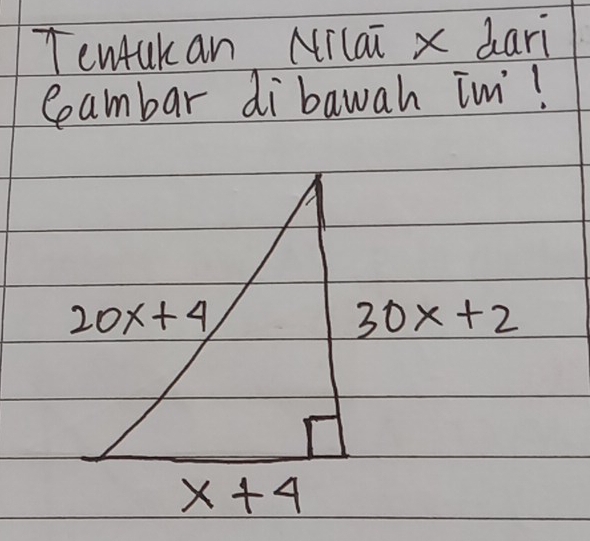 Tentukan Nilai x dari
Gambar di bawah ini!
20x+4
30x+2
x+4